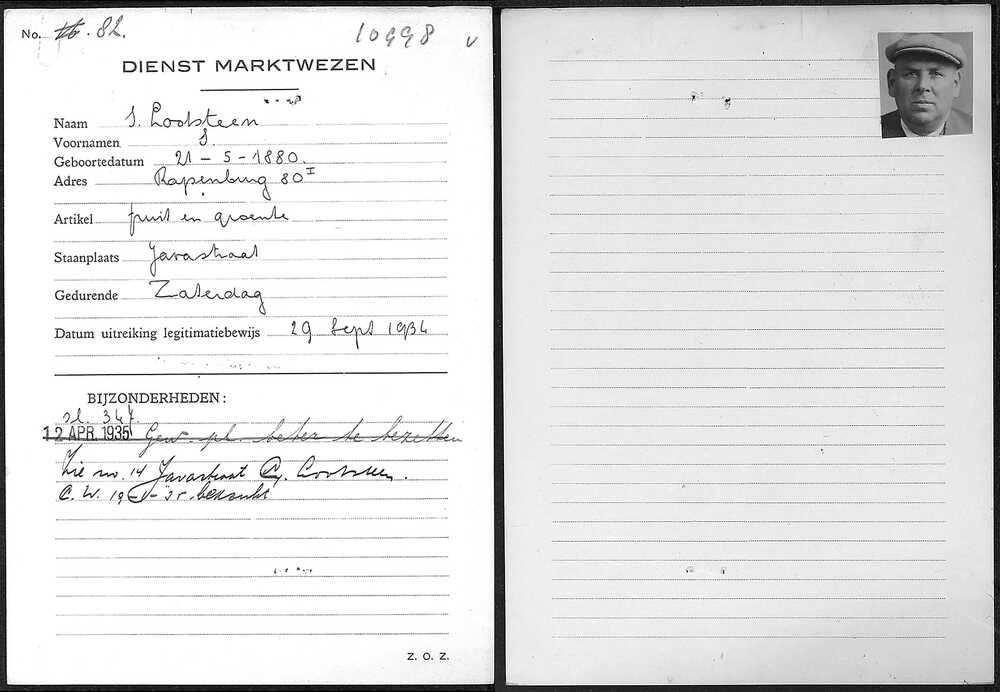 No. 82.
10998 v
DIENST MARKTWEZEN
Naam S. Lootsteen
Voornamen S.
Geboortedatum 21 - 5 - 1880.
Adres Rapenburg 80 I
Artikel fruit en groente
Staanplaats Javastraat
Gedurende Zaterdag
Datum uitreiking legitimatiebewijs 29 Sept 1934
BIJZONDERHEDEN:
pl. 347.
12 APR. 1935 Gew. pl. beter te bezetten
Zie no. 14 Javastraat Lootsteen.
C. W.
Z. O. Z.